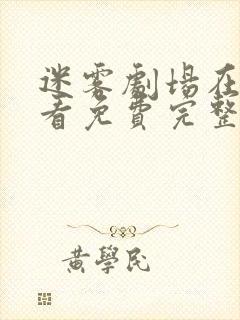 迷霧劇場在
看免費完整
黃學民